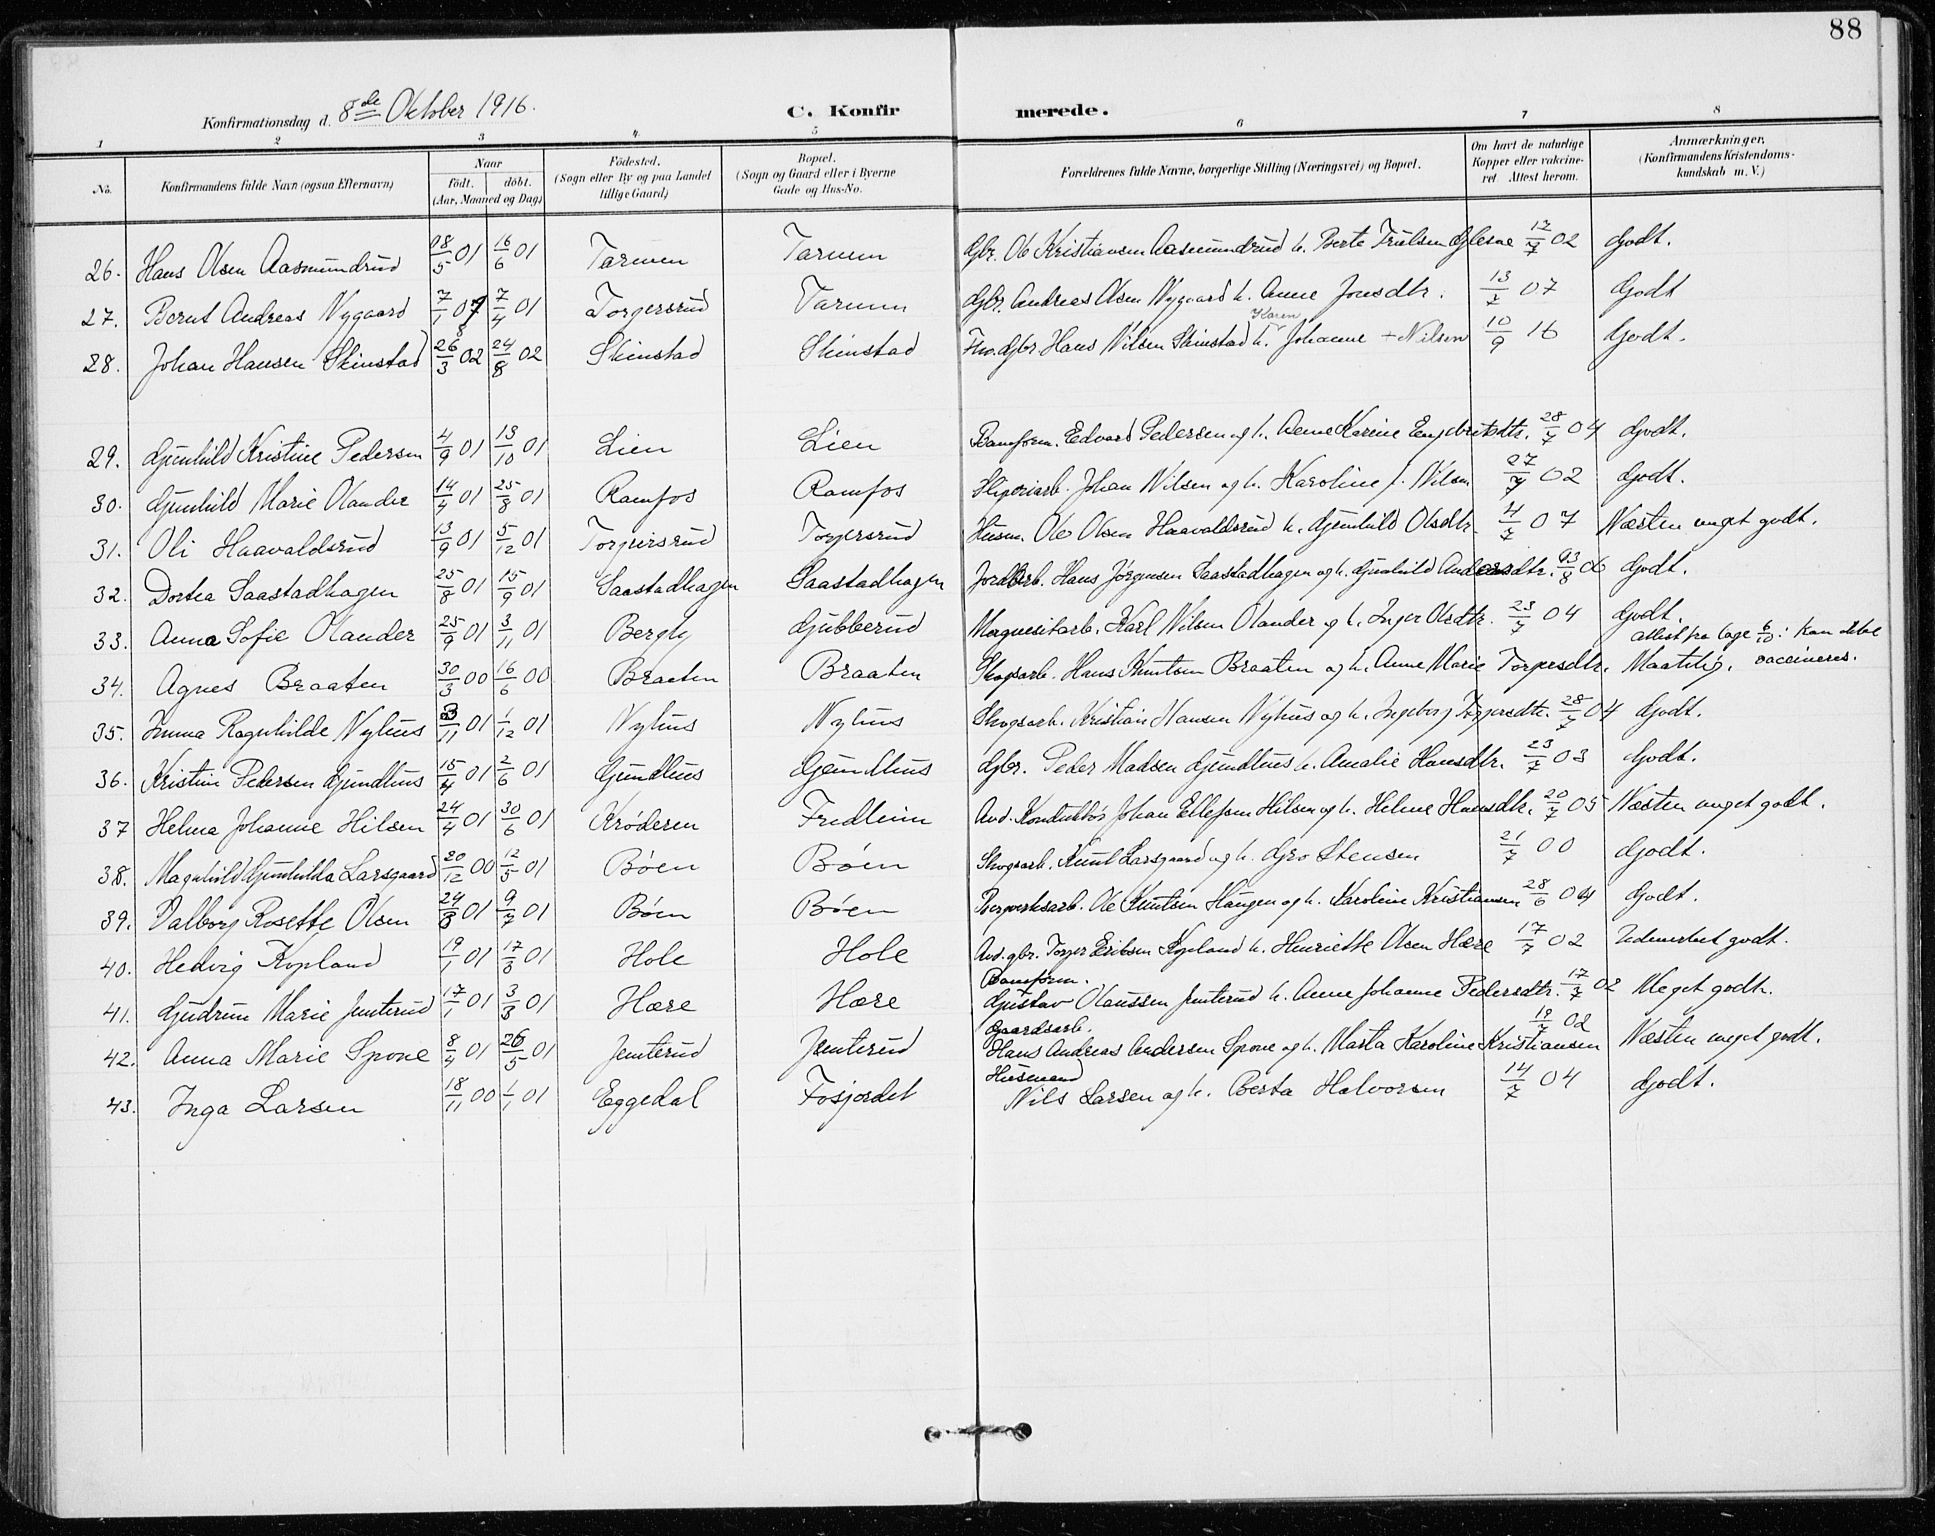 88
Konfirmationsdag d. 8de Oktober 1916.
C. Konfirmerede.
1 2 3 4. 5 6 7 8
No. Konfirmandens fulde Navn (ogsaa Efternavn) Naar født. døbt. (Aar, Maaned og Dag) Födested. (Sogn eller By og paa Landet tillige Gaard) Bopæl. (Sogn og Gaard eller i Byerne Gade og Hus-No. Forældrenes fulde Navne, borgerlige Stilling (Næringsvei) og Bopæl. Om havt de naturlige Kopper eller vakcineret Attest herom. Anmærkninger, (Konfirmandens Kristendomskundskab m. V.)
26. Hans Olsen Aasmundrud 18/5 01 16/6 01 Tarmen Tarmen Gbr. Ole Kristiansen Aasmundrud h. Berte Trulsen Glesne 12/7 02 Godt.
27. Bernt Andreas Nygaard 7/1 07 7/4 01 Torgersrud Tarmen Gbr. Andreas Olsen Nygaard h. Anne Jonsdtr. 13/7 07 Godt
28. Johan Hansen Skinstad 26/3 02 24/8 02 Skinstad Skinstad Gbr. Hans Nilsen Skinstad h. Karen Johanne Nilsen 10/9 16 Godt.
29. Gunhild Kristine Pedersen 4/9 01 13/10 01 Lien Lien Baneform. Edvard Pedersen og h. Anne Karine Engebretsdtr. 28/7 04 Godt.
30. Gunhild Marie Olander 14/4 01 25/8 01 Ramfos Ramfos Sliperiarb. Johan Nilsen og h. Karoline f. Nilsen 27/7 02 Godt.
31. Oli Haavaldsrud 13/9 01 5/12 01 Torgersrud Torgersrud Husm. Ole Olsen Haavaldsrud h. Gunhild Olsdtr. 4/7 07 Næsten meget godt.
32. Dortea Saastadhagen 25/8 01 15/9 01 Saastadhagen Saastadhagen Jordarb. Hans Jörgensen Saastadhagen og h. Gunhild Andersdtr. /8 06 Godt.
33. Anna Sofie Olander 25/9 01 3/11 01 Bergly Gubberud Magnesitarb. Karl Nilsen Olander og h. Inger Olsdtr. 23/7 04 Godt.
34. Agnes Braaten 30/3 00 16/6 00 Braaten Braaten Skogsarb. Hans Knutsen Braaten og h. Anne Marie Torgersdtr. Maatelig. attest fra læge 6/10: Kan ikke vaccineres.
35. Emma Ragnhilde Nyhus 3/11 01 1/12 01 Nyhus Nyhus Skogsarb. Kristian Hansen Nyhus og h. Ingeborg Torgersdtr. 28/7 04 Godt.
36. Kristine Pedersen Gundhus 15/4 01 2/6 01 Gundhus Gundhus Gbr. Peder Madsen Gundhus h. Amalie Hansdtr. 23/7 03 Godt.
37 Helma Johanne Hilsen 24/4 01 30/6 01 Krøderen Fredheim And. Konduktör Johan Ellefsen Hilsen og h. Helene Hansdtr. 20/7 05 Næsten meget godt.
38. Magnhild Gunhilda Larsgaard 20/12 00 12/5 01 Böen Böen Skogsarb. Knut Larsgaard og h. Gro Stensen 21/7 00 Godt.
39. Valborg Rosette Olsen 24/3 01 9/7 01 Böen Böen Bergverksarb. Ole Knutsen Haugen og h. Karoline Kristiansen 28/6 04 Godt.
40. Hedvig Kopland 19/1 01 17/3 01 Hole Hole Avd. gbr. Torger Eriksen Kopland h. Henriette Olsen Hære 17/7 02 Udmerket godt.
41. Gudrun Marie Jenterud 17/1 01 3/3 01 Hære Hære Baneform. Gustav Olaussen Jenterud h. Anne Johanne Pedersdtr. 17/7 02 Meget godt.
42. Anna Marie Spone 8/4 01 26/5 01 Jenterud Jenterud Gaardsarb. Hans Andreas Andersen Spone og h. Marta Karoline Kristiansen 19/7 02 Næsten meget godt.
43. Inga Larsen 18/11 00 1/1 01 Eggedal Fosjordet Husmand Nils Larsen og h. Berta Halvorsen 14/7 04 Godt.